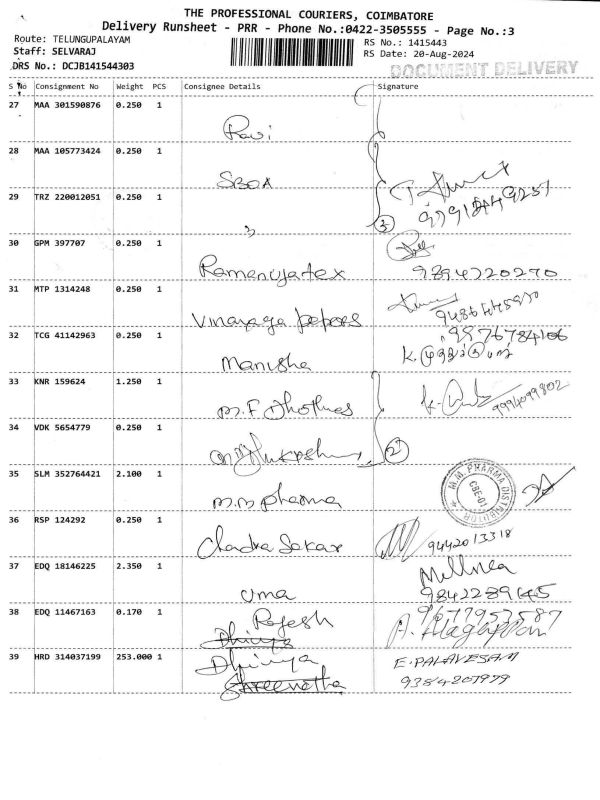 THE PROFESSIONAL COURIERS, COIMBATORE
Delivery Runsheet - PRR - Phone No.:0422-3505555 - Page No.:3
Route: TELUNGUPALAYAM
RS No.: 1415443
Staff: SELVARAJ
RS Date: 20-Aug-2024
DRS No.: DCJB141544303
DOCUMENT DELIVERY
S No Consignment No Weight PCS Consignee Details Signature
27 MAA 301590876 0.250 1
Ravi
28 MAA 105773424 0.250 1
SBOA
29 TRZ 220012051 0.250 1
3
30 GPM 397707 0.250 1
Ramanujatex
9894720270
31 MTP 1314248 0.250 1
Vinayaga papers
32 TCG 41142963 0.250 1
9976784106
Manisha
33 KNR 159624 1.250 1
M.F. Dhothies
9994099802
34 VDK 5654779 0.250 1
2
35 SLM 352764421 2.100 1
M.M pharma
M.M. PHARMA DISTRIBUTOR
CBE-01
36 RSP 124292 0.250 1
Chandra Sekar
9442013318
37 EDQ 18146225 2.350 1
Uma
9842289145
38 EDQ 11467163 0.170 1
Rajesh
9677957587
Dhivya
39 HRD 314037199 253.000 1
Dhivya
E. PALAVESAM
Shreenetha
9384207979